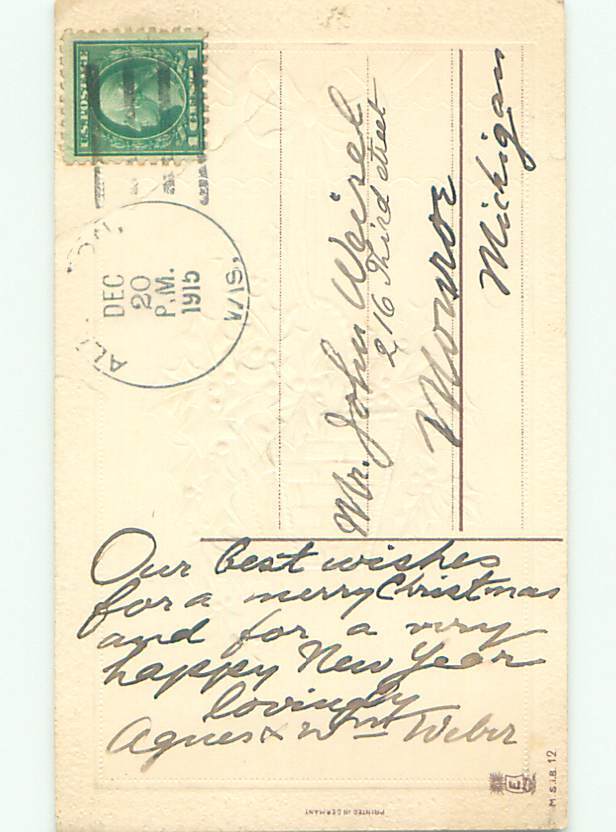 U.S. POSTAGE
1 CENT 1
DEC
20
P.M.
1915
WIS.
Mr. John Weisel
216 Third street
Monroe
Michigan
Our best wishes
for a merry Christmas
and for a very
happy New Year
lovingly
Agnes & Wm Weber
PRINTED IN GERMANY
E
M.S.i.B. 12